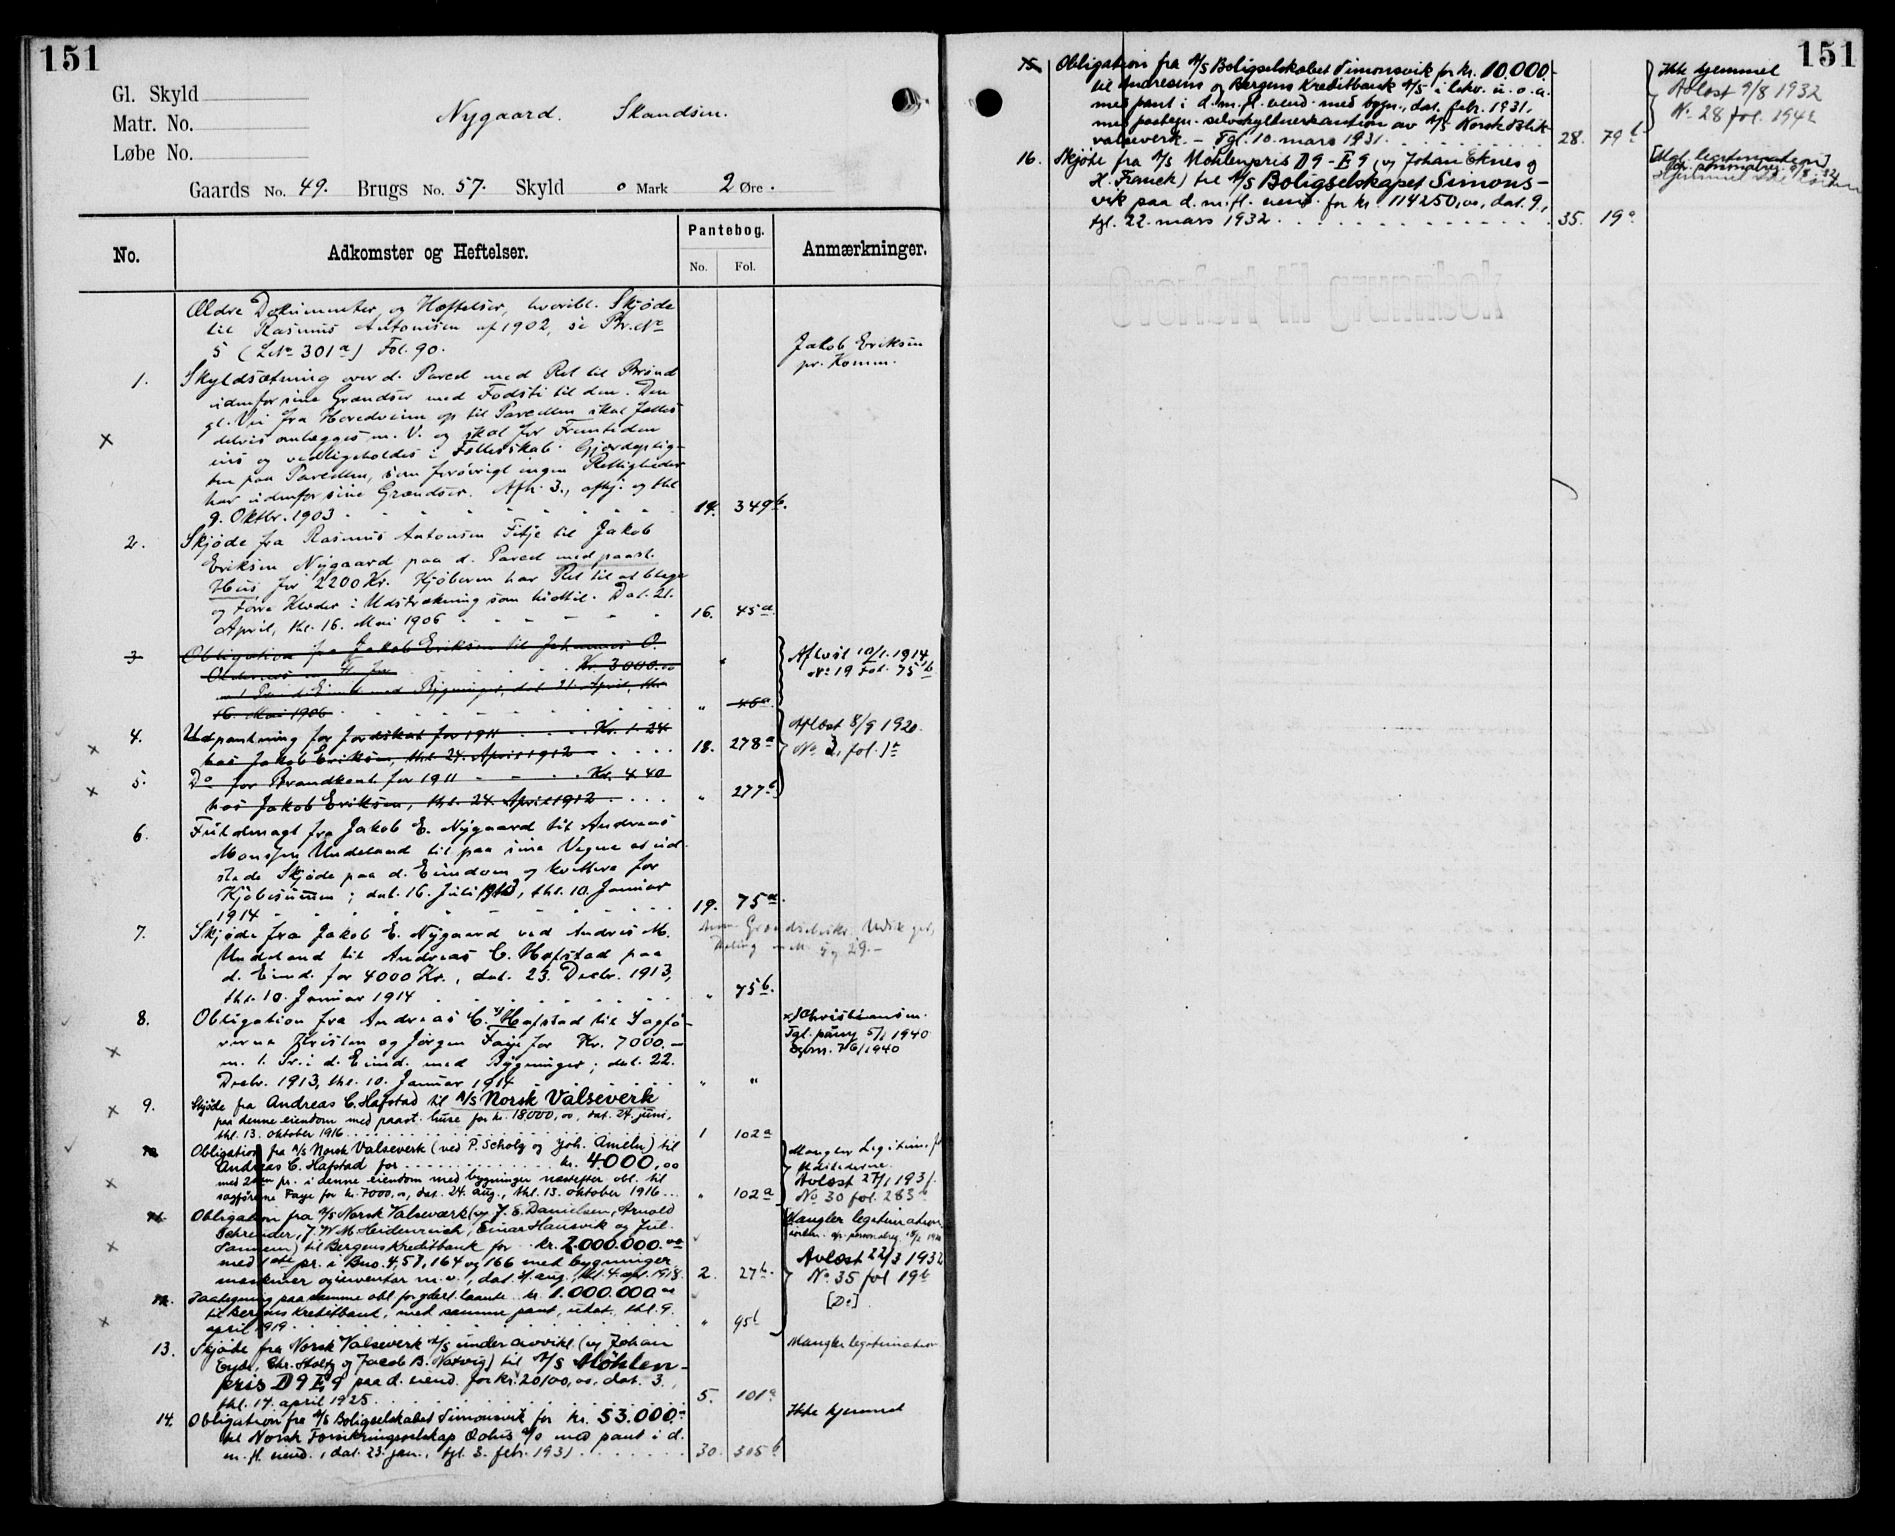 151
Gl. Skyld
Matr. No.
Løbe No.
Nygaard. Skandsen.
Gaards No. 49. Brugs No. 57. Skyld 0 Mark 2 Øre.
No. Adkomster og Heftelser. Pantebog. No. Fol. Anmærkninger.
Ældre Dokumenter og Hæftelser, hvoribl. Skjøde
til Rasmus Antonisen af 1902, se Pr. No
5 (Litr 301a) Fol. 90.
Jakob Eriksen
pr. Komm.
1. Skyldsætning over d. Parcel med Ret til Brønd
udenfor sine Grændser med Fodsti til den. Den
gl. Vei fra Hovedveien op til Parcellen skal fælles
delvis omlægges m. V. og skal for Fremtiden
eies og vedligeholdes i Fællesskab. Gjerdeplig-
ten paa Parcellen, som forøvrigt ingen Rettigheder
har udenfor sine Grændser. Afh. 3., afhj. og thl
9. Oktbr. 1903 14. 349b.
2. Skjøde fra Rasmus Antonsen Fitje til Jakob
Eriksen Nygaard paa d. Parcel med paast.
Hus for 2200 Kr. Kjøberen har Ret til at blege
og tørre Klæder i Udstrækning som hidtil. Dat. 21.
April, thl. 16. Mai 1906 16. 45a
3 Obligation fra Jakob Eriksen til Johannes O.
Kr. 3000.00
med Bygninger, dat. 21. April, thl.
16. Mai 1906 " 46a
Aflæst 10/1. 1914
No 19 Fol. 75b
4. Udpantning for Jordskat for 1911 Kr. 1.24
hos Jakob Eriksen, thl. 24. April 1912 18. 278a
Aflæst 8/9 1920.
No 2, fol. 1a
5. Do for Brandkont. for 1911 Kr. 4.40
hos Jakob Eriksen, thl. 24. April 1912 " 277b
6. Fuldmagt fra Jakob E. Nygaard til Andreas
Monsen Undeland til paa sine Vegne at ud-
stede Skjøde paa d. Eiendom og kvittere for
Kjøbesummen; dat. 16. Juli 1913, thl. 10. Januar
1914 19. 75a.
7. Skjøde fra Jakob E. Nygaard ved Andreas M.
Undeland til Andreas C. Hafstad paa
d. Eiend. for 4000 Kr., dat. 23. Decbr. 1913,
thl. 10. Januar 1914 " 75b.
8. Obligation fra Andreas C. x) Hafstad til Sagfø-
rerne Kristen og Jørgen Faye for Kr. 7000.—
m. 1. Pr. i d. Eiend. med Bygninger; dat. 22.
Decbr. 1913, thl. 10. Januar 1914 " "
x) Christiansen.
Tgl. paany 5/1 1940
7/6 1940
9. Skjøde fra Andreas C. Hafstad til A/S Norsk Valseverk
paa denne eiendom med paast. huse for kr. 18000,00, dat. 24. juni,
thl. 13. oktober 1916 1 102a
10 Obligation fra A/S Norsk Valseverk (ved P. Scholz og Joh. Ameln) til
Andreas C. Hafstad for kr. 4000,00
med 2den pr. i denne eiendom med bygninger næstefter obl. til
sagførerne Faye for kr. 7000,00, dat. 24. aug., thl. 13. oktober 1916 " 102a
Mangler Legitim. for
Udstederne.
Avlæst 27/1 1931.
No 30 fol. 283b
11. Obligation fra A/S Norsk Valseværk (v J. E. Danielsen, Arnold
Schreuder, J. W. M. Heidenreich, Einar Hausvik og Jul.
til Bergens Kreditbank for kr. 2.000.000.00
med 1ste pr. i Bno. 4, 57, 164 og 166 med bygninger,
maskiner og inventar m. v., dat. 31. aug., thl. 4. spt. 1918. 2. 27b.
Mangler legitimation
Avlæst 22/3 1932
No 35 fol 19b
[Do]
12. Paategning paa samme obl. for ydert. laante kr. 1.000.000.00
til Bergens Kreditbank, med samme pant, udat., thl. 9.
april 1919 " 95b
13. Skjøde fra Norsk Valseverk A/S under avvikl. (v Johan
Eyde, Chr. Stoltz og Jacob B. Natvig) til A/S Möhlen-
pris D9 E9 paa d. eiend. for kr. 20100,00, dat. 3.,
thl. 17. april 1925 5. 101a
Mangler legitimation
14. Obligation fra A/S Boligselskabet Simonsvik for kr. 53.000.-
til Norsk Forsikringsselskap Æolus A/S med pant i d.
m. fl. eiend., dat. 23. jan., tgl. 3. febr. 1931 30. 305b
Ikke hjemmel
151
15. Obligation fra A/S Boligselskabet Simonsvik for kr. 10.000.-
til Andresens og Bergens Kreditbank A/S i likv. u. o. a.
med pant i d. m. fl. eiend. med bygn., dat. febr. 1931,
med paategn. selvskyldnerkaution av A/S Norsk Blik-
valseverk. — Tgl. 10. mars 1931. 28. 79b
Ikke hjemmel
Avlæst 9/8 1932
No. 28 fol. 194a
16. Skjøte fra A/S Möhlenpris D9 - E9 (v Johan Eknes og
H. Franck) til A/S Boligselskapet Simons-
vik paa d. m. fl. eiend. for kr. 114250,00, dat. 9.,
tgl. 22. mars 1932 35. 19a
[Mgl. legitimation]